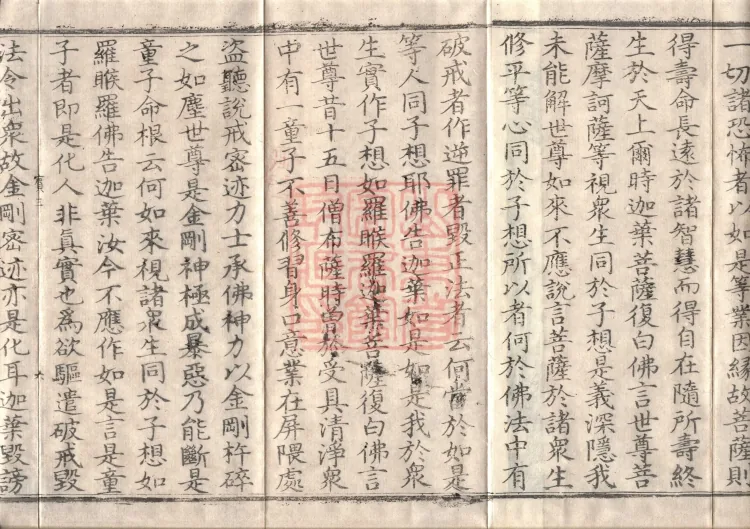 一切諸恐怖者以如是等業因緣故菩薩則
得壽命長遠於諸智慧而得自在隨所壽終
生於天上爾時迦葉菩薩復白佛言世尊菩
薩摩訶薩等視衆生同於子想是義深隱我
未能解世尊如來不應說言菩薩於諸衆生
修平等心同於子想所以者何於佛法中有
破戒者作逆罪者毀正法者云何當於如是
等人同子想耶佛告迦葉如是如是我於衆
生實作子想如羅睺羅迦葉菩薩復白佛言
世尊昔十五日僧布薩時曾於受具清淨衆
中有一童子不善修習身口意業在屏隈處
盜聽說戒密迹力士承佛神力以金剛杵碎
之如塵世尊是金剛神極成暴惡乃能斷是
童子命根云何如來視諸衆生同於子想如
羅睺羅佛告迦葉汝今不應作如是言是童
子者即是化人非眞實也爲欲驅遣破戒毀
法令出衆故金剛密迹亦是化耳迦葉毀謗